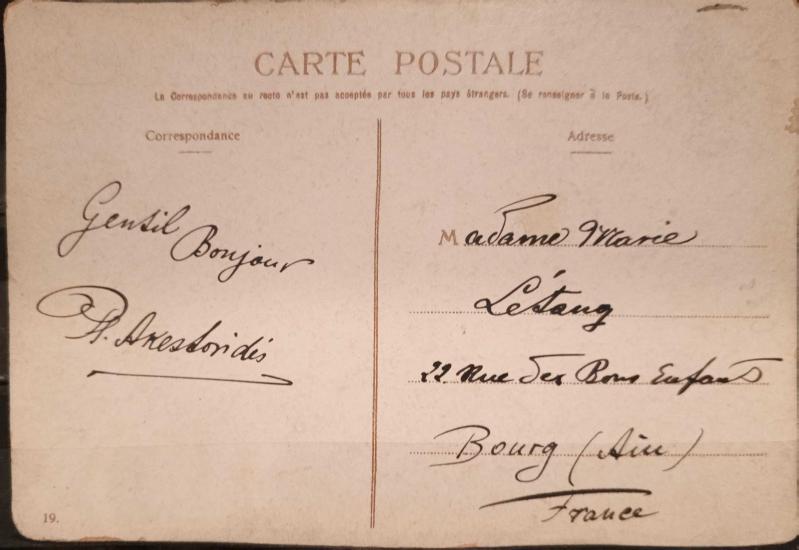 CARTE POSTALE
La Correspondance au recto n'est pas acceptée par tous les pays étrangers. (Se renseigner à la Poste.)
Correspondance
Gentil
Bonjour
H. Akestoridis
19.
Adresse
Madame Marie
Létang
22 Rue des Bons Enfants
Bourg (Ain)
France